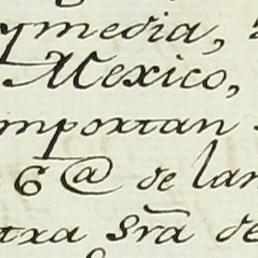 ymedia,
Mexico,
importan
6 @ de lan
txa Sra de